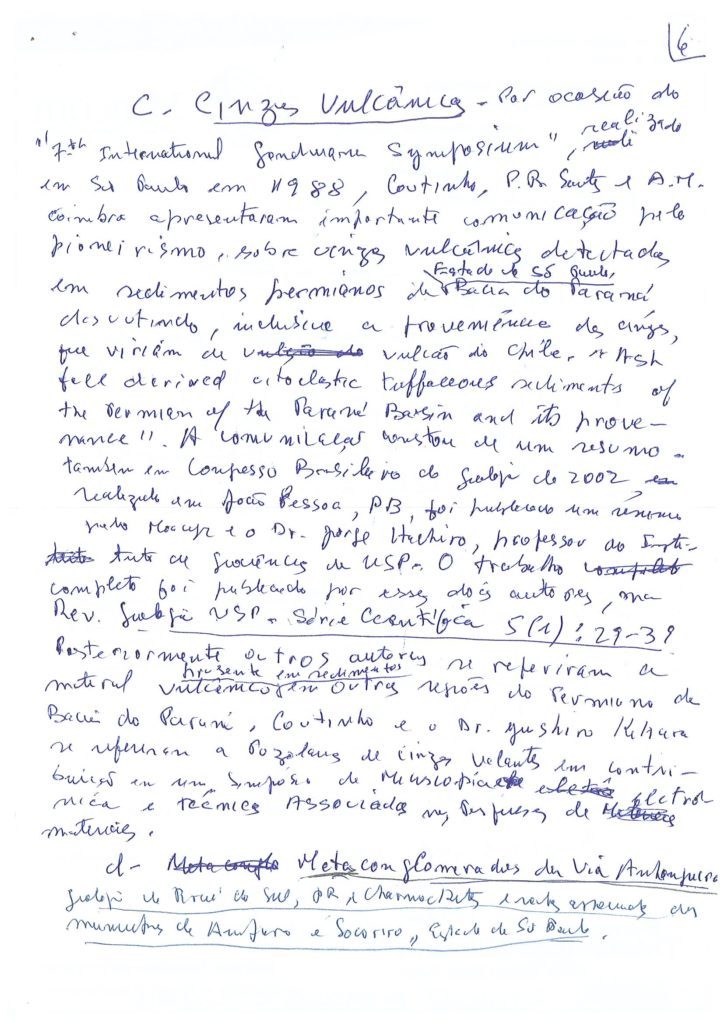 6
C. Cinzas Vulcânicas - Por ocasião do
"7th International Gondwana Symposium", realizado
em São Paulo em 1988, Coutinho, P.R. Santos e A.M.
Coimbra apresentaram importante comunicação pelo
pioneirismo, sobre cinzas vulcânicas detectadas
Estado do
em sedimentos permianos da Bacia do Paraná
discutindo, inclusive a proveniência das cinzas,
que viriam de vulcão do Chile. "Ash
fall derived vitroclastic tuffaceous sediments of
the Permian of the Paraná Basin and its prove-
nance". A comunicação constou de um resumo.
também em Congresso Brasileiro de Geologia de 2002
realizado em João Pessoa, PB, foi publicado um resumo
pelo Moacyr e o Dr. Jorge Hachiro, professor do Insti-
tuto de Geociências da USP. O trabalho
completo foi publicado por esses dois autores, na
Rev. Geologia USP. Série Científica 5(1): 29-39
Posteriormente outros autores se referiram a
presente em sedimentos
material vulcânico em outras regiões do Permiano da
Bacia do Paraná, Coutinho e o Dr. Yushiro Kihara
se referiram a Pozolana de cinzas volantes em contri-
buição em um Simpósio de Microscopia Eletrô-
nica e Técnicas Associadas nas Pesquisas de
materiais.
d- Metaconglomerados da
Geologia de do Sul, PR e Charnockitos e rochas associadas dos
municípios de Amparo e Socorro, Estado de São Paulo.